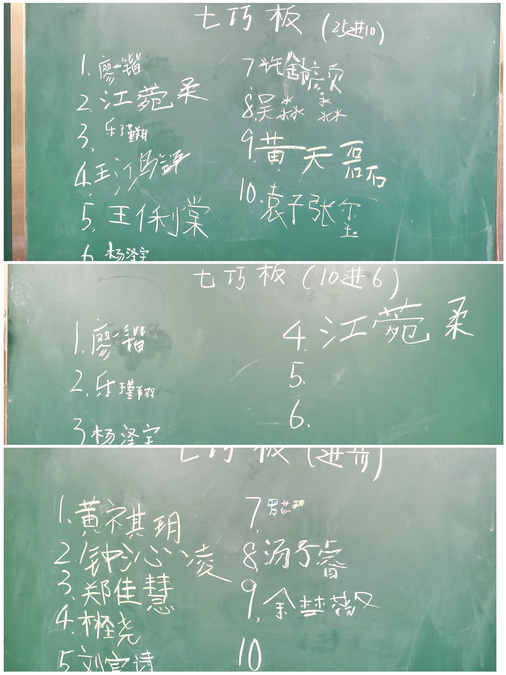 七巧板(25进10)
1.廖一锴
2.江菀柔
3.乐瑾翔
4.王江
5.王俐棠
6.杨泽宇
7.许
8.吴淼淼
9.黄天磊
10.袁子张玺
七巧板(10进6)
1.廖一锴
2.乐瑾翔
3.杨泽宇
4.江菀柔
5.
6.
七巧板(进阶)
1.黄祺玥
2.钟沁凌
3.郑佳慧
4.林晓
5.刘宣诗
7.罗
8.汤予睿
9.余梦
10